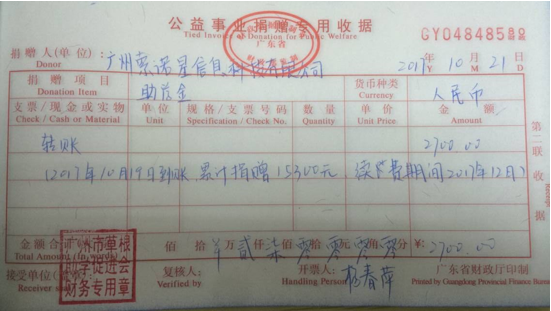 公益事业捐赠专用收据
Tied Invoice of Donation for Public Welfare
广东省
GY048485
捐赠人(单位): 广州索诺星信息科技有限公司 2017年 10月 21日
Donor Y M D
捐赠项目 助学金 货币种类 人民币
Donation Item Currency
支票/现金或实物 单位 规格/支票号码 数量 单价 金额
Check / Cash or Material Unit Specification / Check No Quantity Unit Price Amount
转账 2700.00
(2017年10月19日到账,累计捐赠15300元,续学费期间2017年12月)
第二联
金额合计 佰 拾 万 贰仟 柒佰 零拾 零元 零角 零分 ¥: 2700.00
Total Amount (in words)
接受单位 复核人: 开票人: 杨春萍 广东省财政厅印制
Receiver Verified by Handling Person Printed by Guangdong Provincial Finance Bureau
市草根
助学促进会
财务专用章